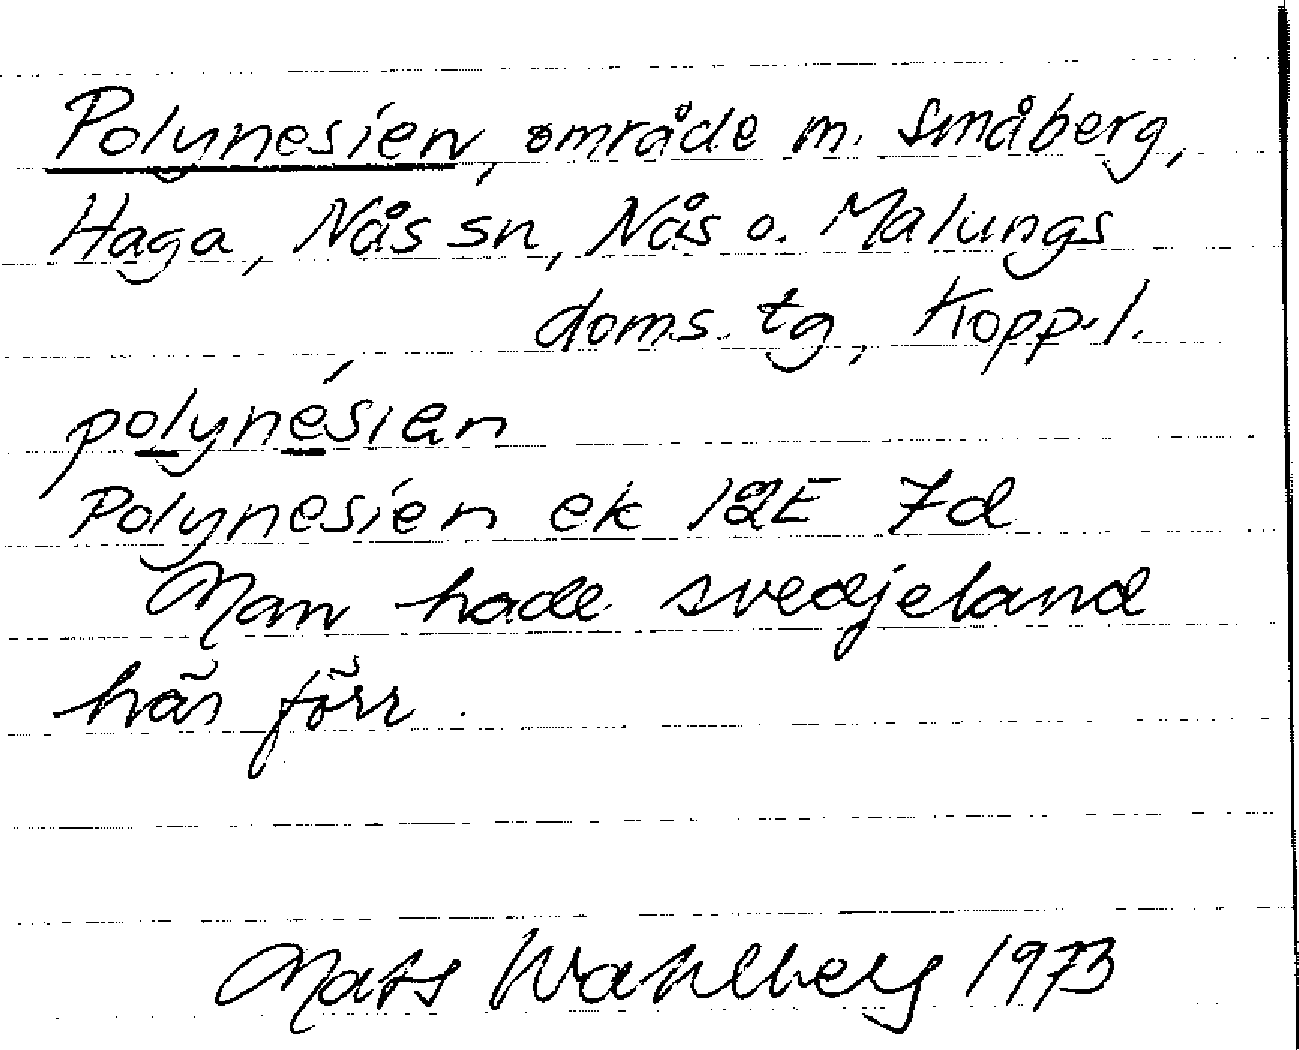 Polynesien, område m. småberg,
Haga, Nås sn, Nås o. Malungs
doms. tg, Kopp.l.
polynésien
Polynesien ek 12E 7d
Man hade svedjeland
här förr.
Mats Wahlberg 1973